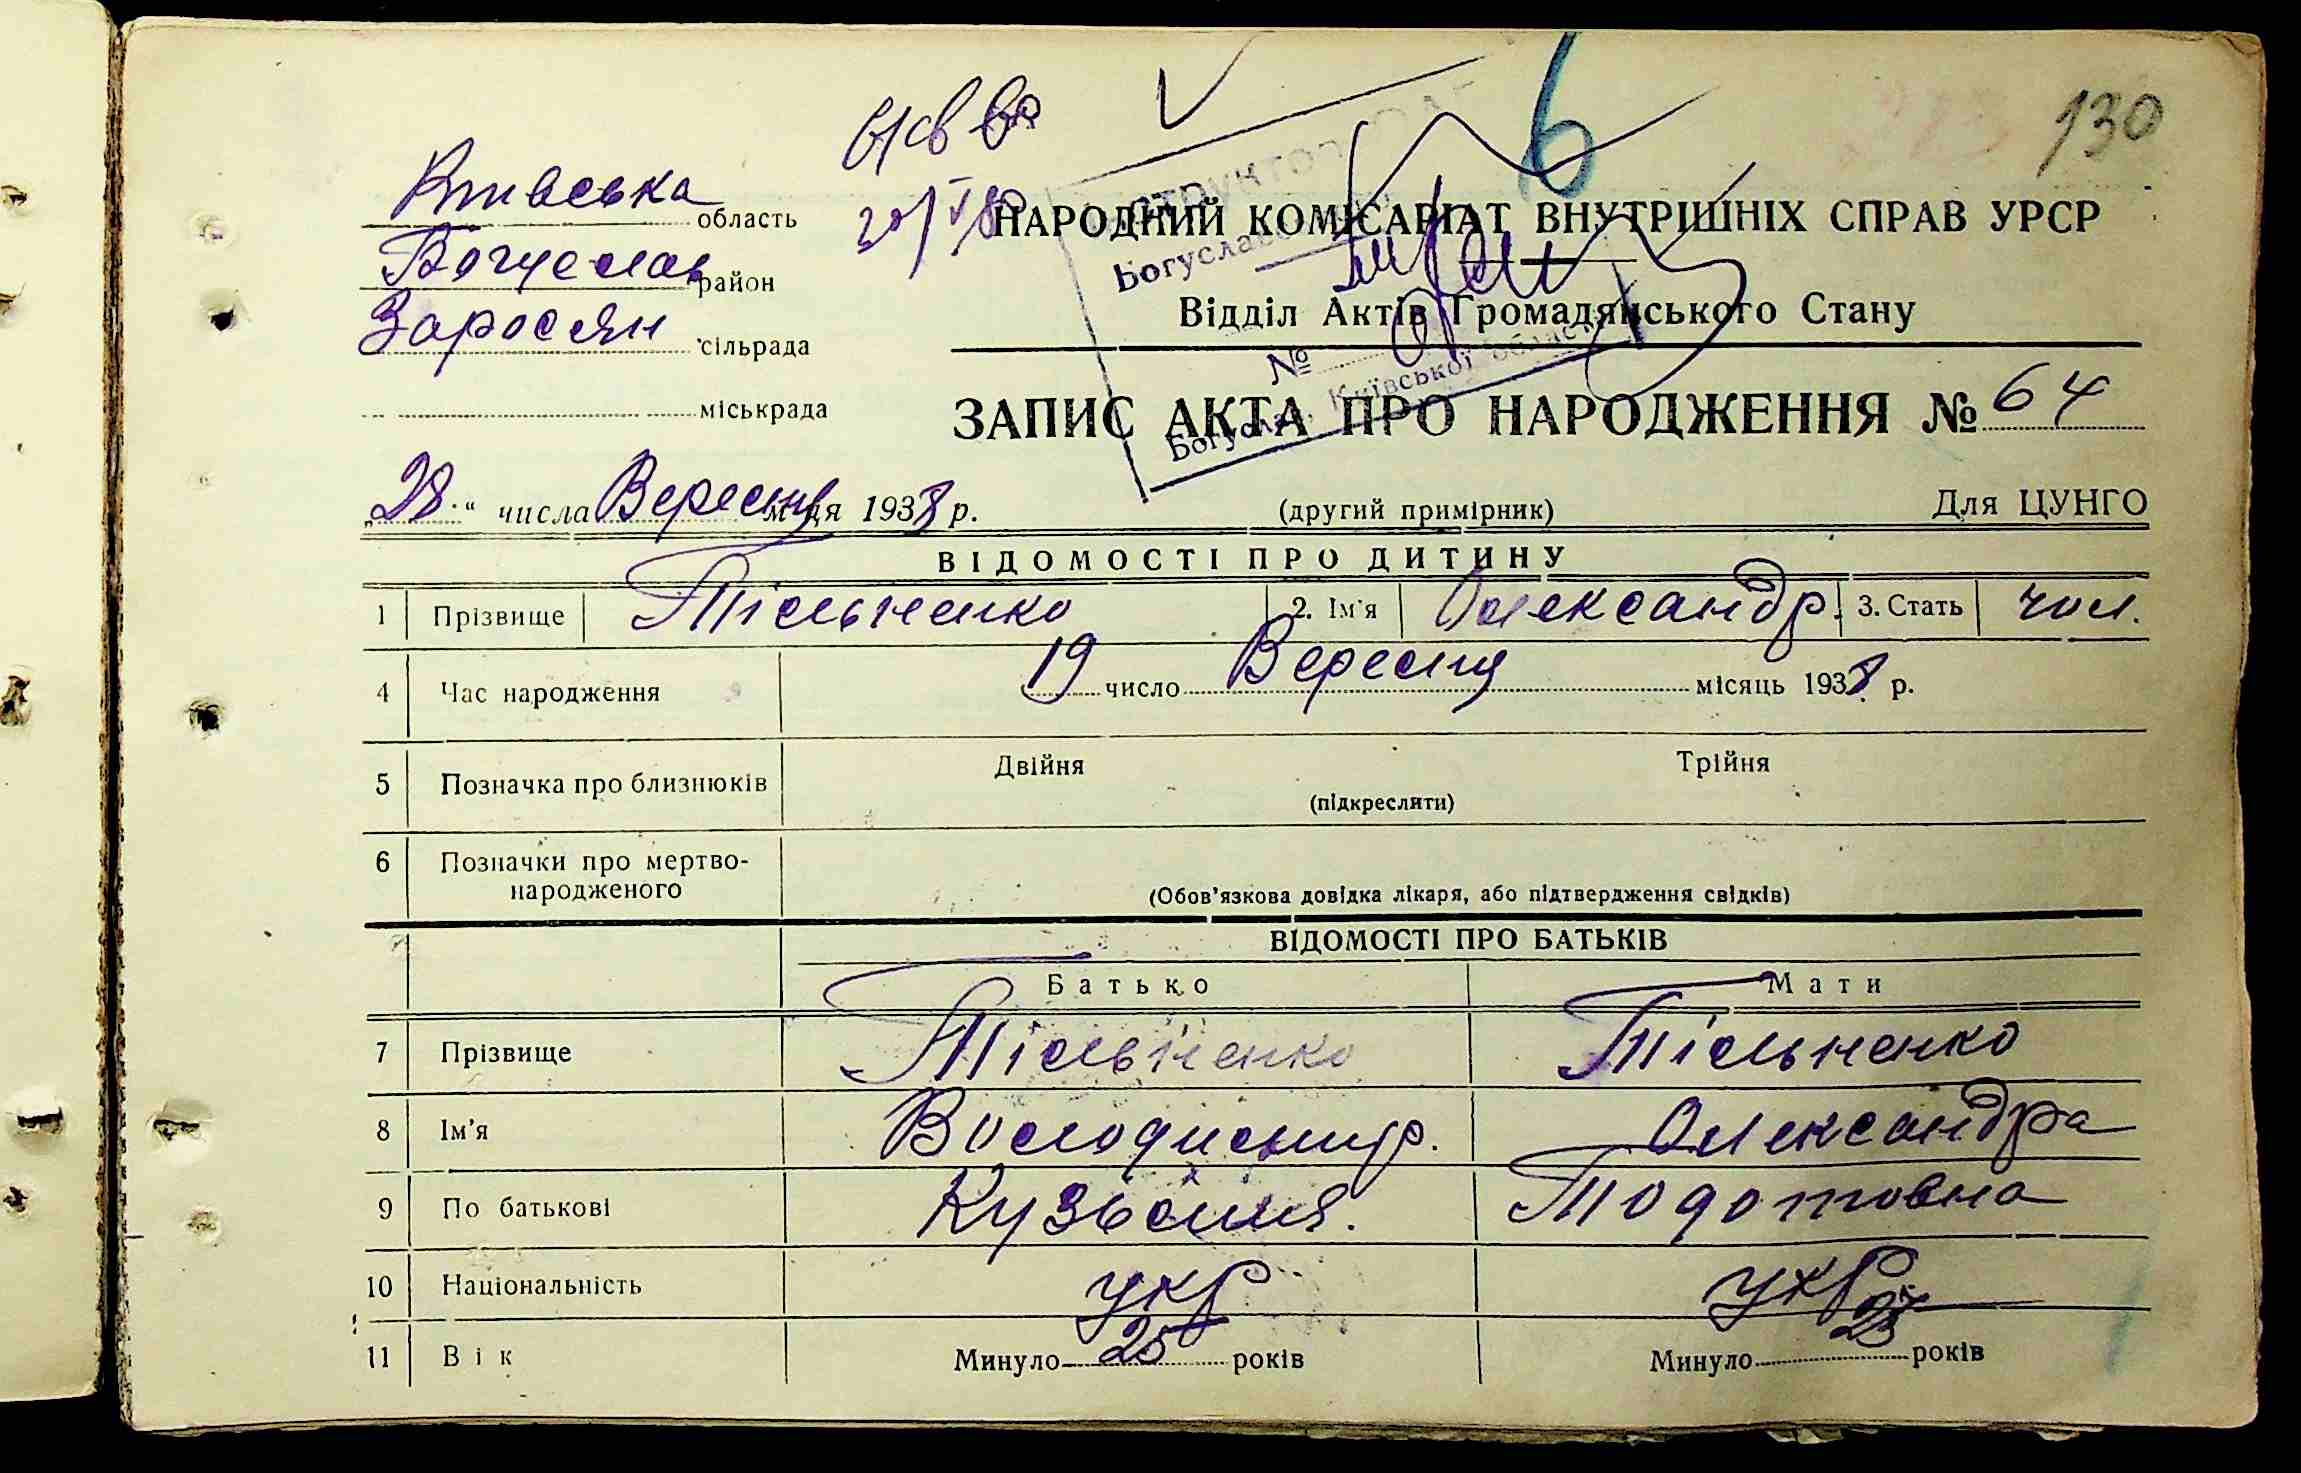 130
6
Київська область
Богуслав район
Заросян сільрада
міськрада
НАРОДНИЙ КОМІСАРІАТ ВНУТРІШНІХ СПРАВ УРСР
Відділ Актів Громадянського Стану
№
Богуслав, Київської області
ЗАПИС АКТА ПРО НАРОДЖЕННЯ № 64
„28“ числа Вересня м-ця 1938 р.
(другий примірник)
Для ЦУНГО
ВІДОМОСТІ ПРО ДИТИНУ
1 Прізвище Тісльненко 2. Ім'я Олександр. 3. Стать чол.
4 Час народження 19 число Вересня місяць 1938 р.
5 Позначка про близнюків Двійня Трійня
(підкреслити)
6 Позначки про мертво-
народженого
(Обов'язкова довідка лікаря, або підтвердження свідків)
ВІДОМОСТІ ПРО БАТЬКІВ
Батько Мати
7 Прізвище Тісльненко Тісльненко
8 Ім'я Володимир. Олександра
9 По батькові Кузьмич. Тодотовна
10 Національність укр укр
11 Вік Минуло 25 років Минуло 23 років